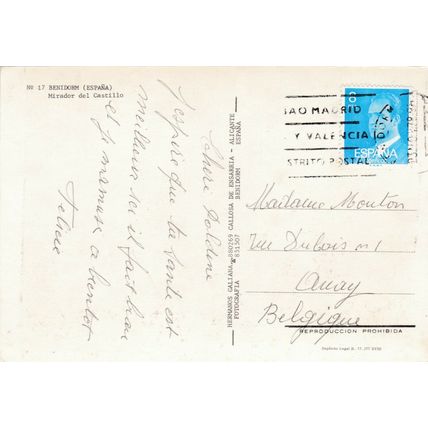 Nº 17 BENIDORM (ESPAÑA)
Mirador del Castillo
Chère Poldine
J espère que ta santé est
meilleur ici il fait beau
et je m'amuse a bientot
HERMANOS GALIANA - 880269 CALLOSA DE ENSARRIA - ALICANTE
FOTOGRAFIA 831507 BENIDORM ESPAÑA
8
ESPAÑA
MADRID
Y VALENCIA
DISTRITO POSTAL
Madame Mouton
rue Dubois n 1
Belgique
REPRODUCCION PROHIBIDA
Depósito Legal B.